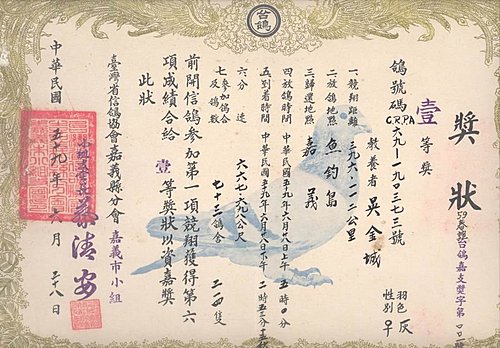 台鴿
獎狀
59春競台鴿嘉支獎字第
壹等獎
鴿號碼 C.R.P.A 六九—一九〇三七三號
羽色 灰
性別 ♀
教養者 吳金城
一競翔距離 三九六·一一二公里
二放鴿地點 魚釣島
三歸還地點 嘉義
四放鴿時間 中華民國五九年六月廿八日上午五時〇分
五到着時間 中華民國五九年六月廿八日下午二時五三分
六分速 六六七·六九八公尺
七參加鴿舍及鴿數 七十三鴿舍 二一四隻
前開信鴿參加第一項競翔獲得第六
項成績合給 壹 等獎狀以資嘉獎
此狀
臺灣省信鴿協會嘉義縣分會 嘉義市小組
蔡清安
中華民國五十九年六月二十八日